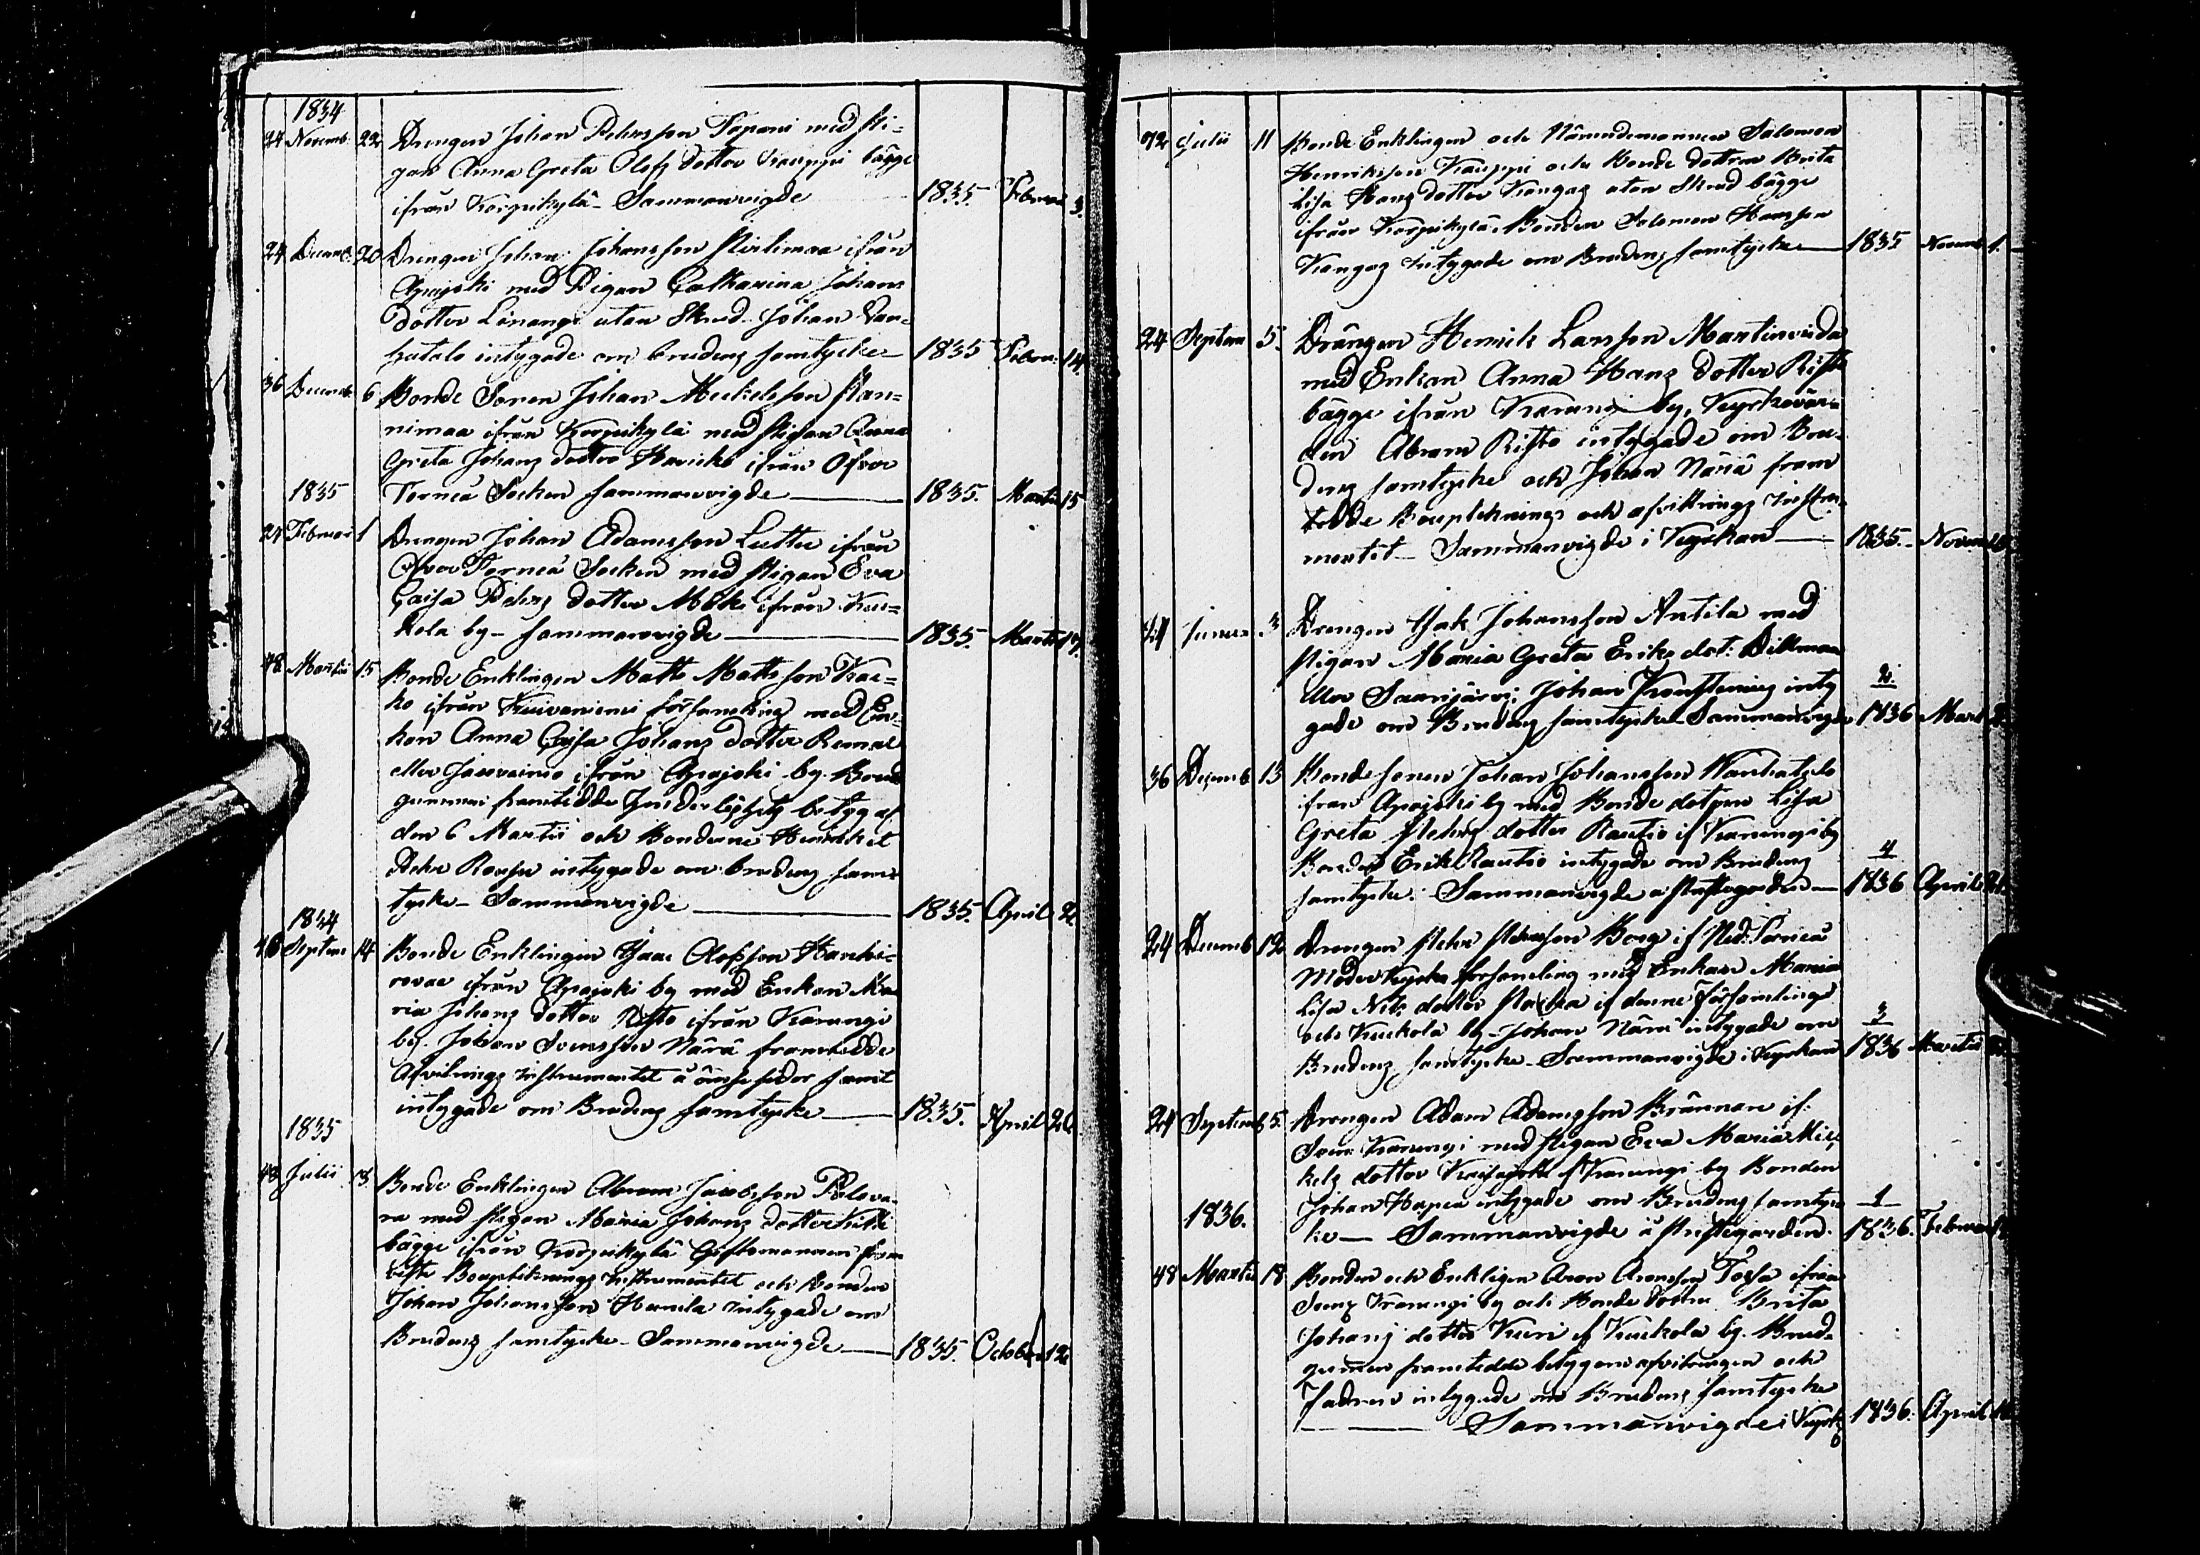 1834
24 Novemb. 22 Drengen Johan Pehrsson Tapani med Pi=
gan Anna Greta Olofs dotter Kauppi bägge
ifrån Korpikylä – Sammanvigde 1835 Februa 3.
24 Decemb. 20 Drengen Johan Johansson ifrån
Apajoki med Pigan Catharina Johans
dotter utan Skrud. Johan Van=
hatalo intygade om brudens samtycke – 1835 Febru. 14.
36 Decemb. 6 Bonde Sonen Johan Mickelsson Kan=
nimaa ifrån Korpikylä med Pigan Anna
Greta Johans dotter ifrån Öfver
1835 Torneå Socken sammanvigde 1835. Martii 15
24 Februari 1 Drengen Johan Adamsson ifrån
Öfver Torneå Socken med Pigan Eva
Caisa Pehrs dotter ifrån Kuc=
kola by – sammanvigde 1835. Martii
48 Martii 15 Bonde Enklingen Matts Mattsson Kac=
ko ifrån Kuivaniemi församling med En=
kan Anna Caisa Johans dotter
eller ifrån Apajoki by. Brud
gummen framtedde betyg af
den 6 Martii och Bönderne
intygade om brudens sam=
tycke – Sammanvigde 1835. April 2
1834
48 Septem 14 Bonde Enklingen Isac Olofsson Karhi=
ovaa ifrån Apajoki by med Enkan Ma
ria Johans dotter Risto ifrån Karungi
by. Johan Svensson Närä framtedde
Afvittrings Instrumentet å ömse sidor samt
intygade om Brudens samtycke 1835. April 20.
1835
48 Julii 13. Bonde Enklingen Abram Jacobsson Palova=
ra med Pigan Maria Johans dotter
bägge ifrån Korpikylä Giftomannen fram
Bouptecknings Instrumentet och Bonden
Johan Johansson intygade om
Brudens samtycke – Sammanvigde 1835. October 12
72 Julii 11 Bonde Enklingen och Nämndemannen Salomon
Henriksson Kauppi och Bonde dottren Brita
Lisa Hans dotter Kangas utan Skrud bägge
ifrån Korpikylä. Bonden Salomon Hansson
Kangas intygade om Brudens samtycke 1835 Novemb 1.
24 Septem 5. Drängen Henrik Larsson Martinviida
med Enkan Anna Hans dotter Risto
bägge ifrån Karungi by, Kyrkovär=
den Abram Risto intygade om Bru=
dens samtycke och Johan Närä fram
tedde Bouptecknings och afvittrings Instru=
mentet – Sammanvigde i Kyrkan 1835. – Novem
24 3 Drengen Isak Johansson Antila med
Pigan Maria Greta Eriks dot:
eller Saarijärvi. Johan inty 2.
gade om Brudens samtycke Sammanvigde 1836 Mart
36 Decemb 13 Bonde sonen Johan Johansson Vanhatalo
ifrån Apajoki by med Bonde dottren Lisa
Greta Pehrs dotter Rautio if Karungi by
Bonden Erik Rautio intygade om Brudens 4
samtycke. Sammanvigde å Prestegården – 1836 April
24 Decemb 12 Drengen Pehr Pehrsson Borg if Ned: Torneå
Moder Kyrko församling med Enkan Maria
Lisa Nils dotter if denne Församling
och Kuckola by – Johan Närä intygade om 3
Brudens samtycke – Sammanvigde i Kyrkan 1836 Martii
24 Septemb 5. Drengen Adam Adamsson Brännare if:
Sven Karungi med Pigan Eva Maria Mic
kels dotter if Karungi by Bonden
Johan intygade om Brudens samtyc 1
1836. ke – Sammanvigde å Prestegården. 1836. Februari
48 Martii 18 Bonden och Enklingen Aron Aronsson ifrån
Svens Karungi by och Bonde dottren Brita
Johans dotter if Kuckola by. Brud=
gummen framtedde betygom afvittringen och
Fadren intygade om Brudens samtycke
Sammanvigde i Kyrk 1836. April